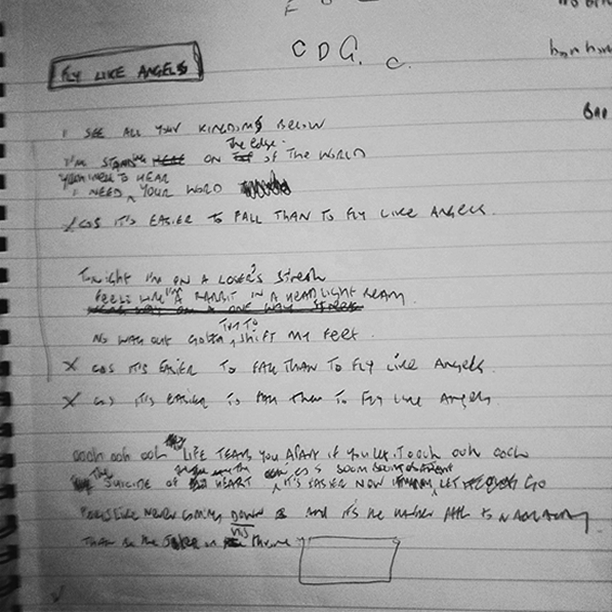 C D G. C.
FLY LIKE ANGELS
I SEE ALL YOUR KINGDOMS BELOW
the edge
I'M STANDING ON OF THE WORLD
TO HEAR
I NEED YOUR WORD
X COS IT'S EASIER TO FALL THAN TO FLY LIKE ANGELS.
Tonight I'M ON A LOSER'S Streak
FEELS LIKE I'M A RABBIT IN A HEADLIGHT BEAM
TRY TO
NO WAY OUT GOTTA SHIFT MY FEET
X COS IT'S EASIER TO FALL THAN TO FLY LIKE ANGELS.
X COS IT'S EASIER TO FALL THAN TO FLY LIKE ANGELS
oooh ooh ooh LIFE TEARS YOU APART if you let it ooh ooh oooh
The
SUICIDE OF HEART IT'S EASIER NOW LET GO
FEELS LIKE NEVER COMING DOWN and it's the
THAN BE THE IN throne